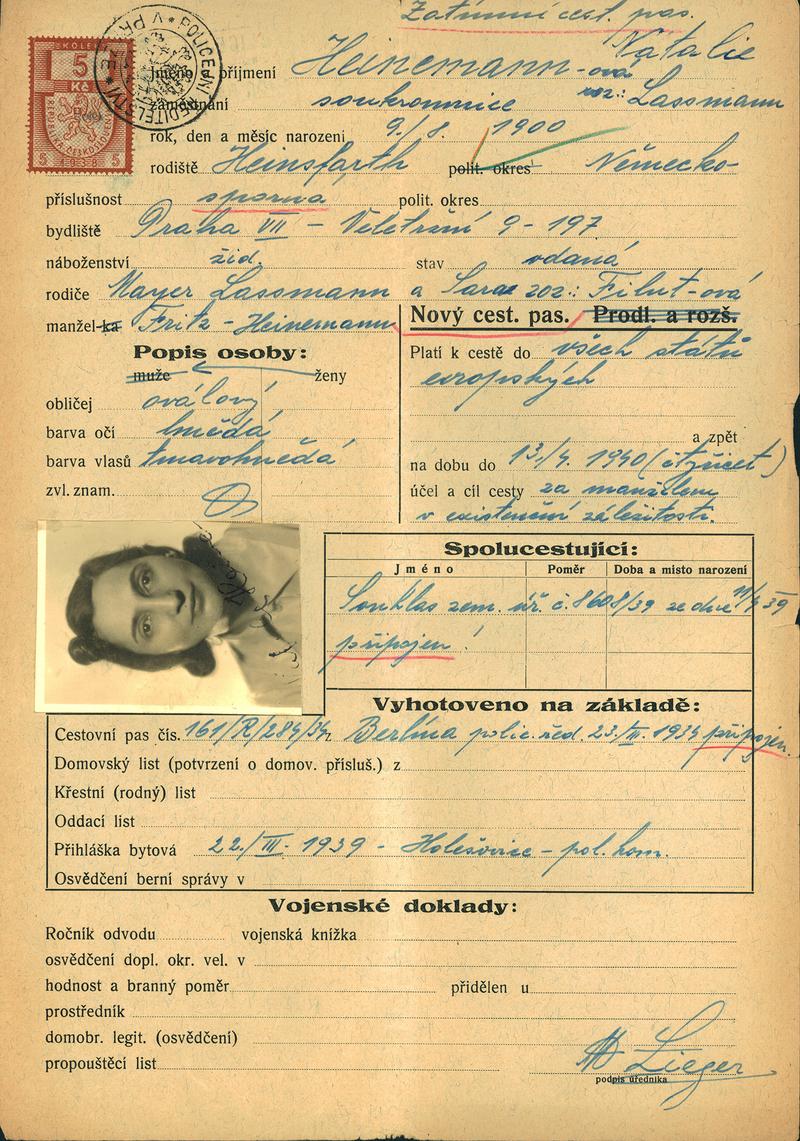 Zatímní cest. pas.
KOLEK
5
Kč
REPUBLIKA ČESKOSLOVENSKÁ
5 1938 5
POLICEJNÍ ŘEDITELSTVÍ V PRAZE
Jméno a příjmení Heinemann-ová Natalie
zaměstnání soukromnice roz.: Lassmann
rok, den a měsíc narození 9./8. 1900
rodiště Heinsfarth polit. okres Německo
příslušnost sporná polit. okres
bydliště Praha VII - Veletržní 9 - 197
náboženství žid. stav vdaná
rodiče Mayer Lassmann a Sara roz.: Filut-ová
manžel-ka Fritz - Heinemann
Nový cest. pas. Prodl. a rozš.
Popis osoby:
muže ženy
obličej oválový
barva očí hnědá
barva vlasů tmavohnědá
zvl. znam.
Platí k cestě do všech států
evropských
a zpět
na dobu do 13./4. 1940 (čtyřicet)
účel a cíl cesty za manželem
v existenční záležitosti.
Spolucestující:
Jméno Poměr Doba a místo narození
Souhlas zem. úř. č. 8608/39 ze dne 11/4 39
připojen!
Vyhotoveno na základě:
Cestovní pas čís. 161/R/284/34 z Berlína polic. řed. 23./III. 1934 připojen.
Domovský list (potvrzení o domov. přísluš.) z
Křestní (rodný) list
Oddací list
Přihláška bytová 22./III. 1939 - Holešovice - pol. kom.
Osvědčení berní správy v
Vojenské doklady:
Ročník odvodu vojenská knížka
osvědčení dopl. okr. vel. v
hodnost a branný poměr přidělen u
prostředník
domobr. legit. (osvědčení)
propouštěcí list
Lieger
podpis úředníka